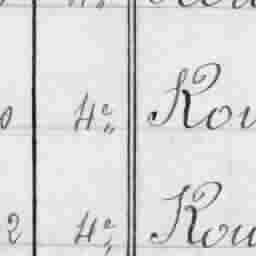 0 4° Rou
2 4° Rou